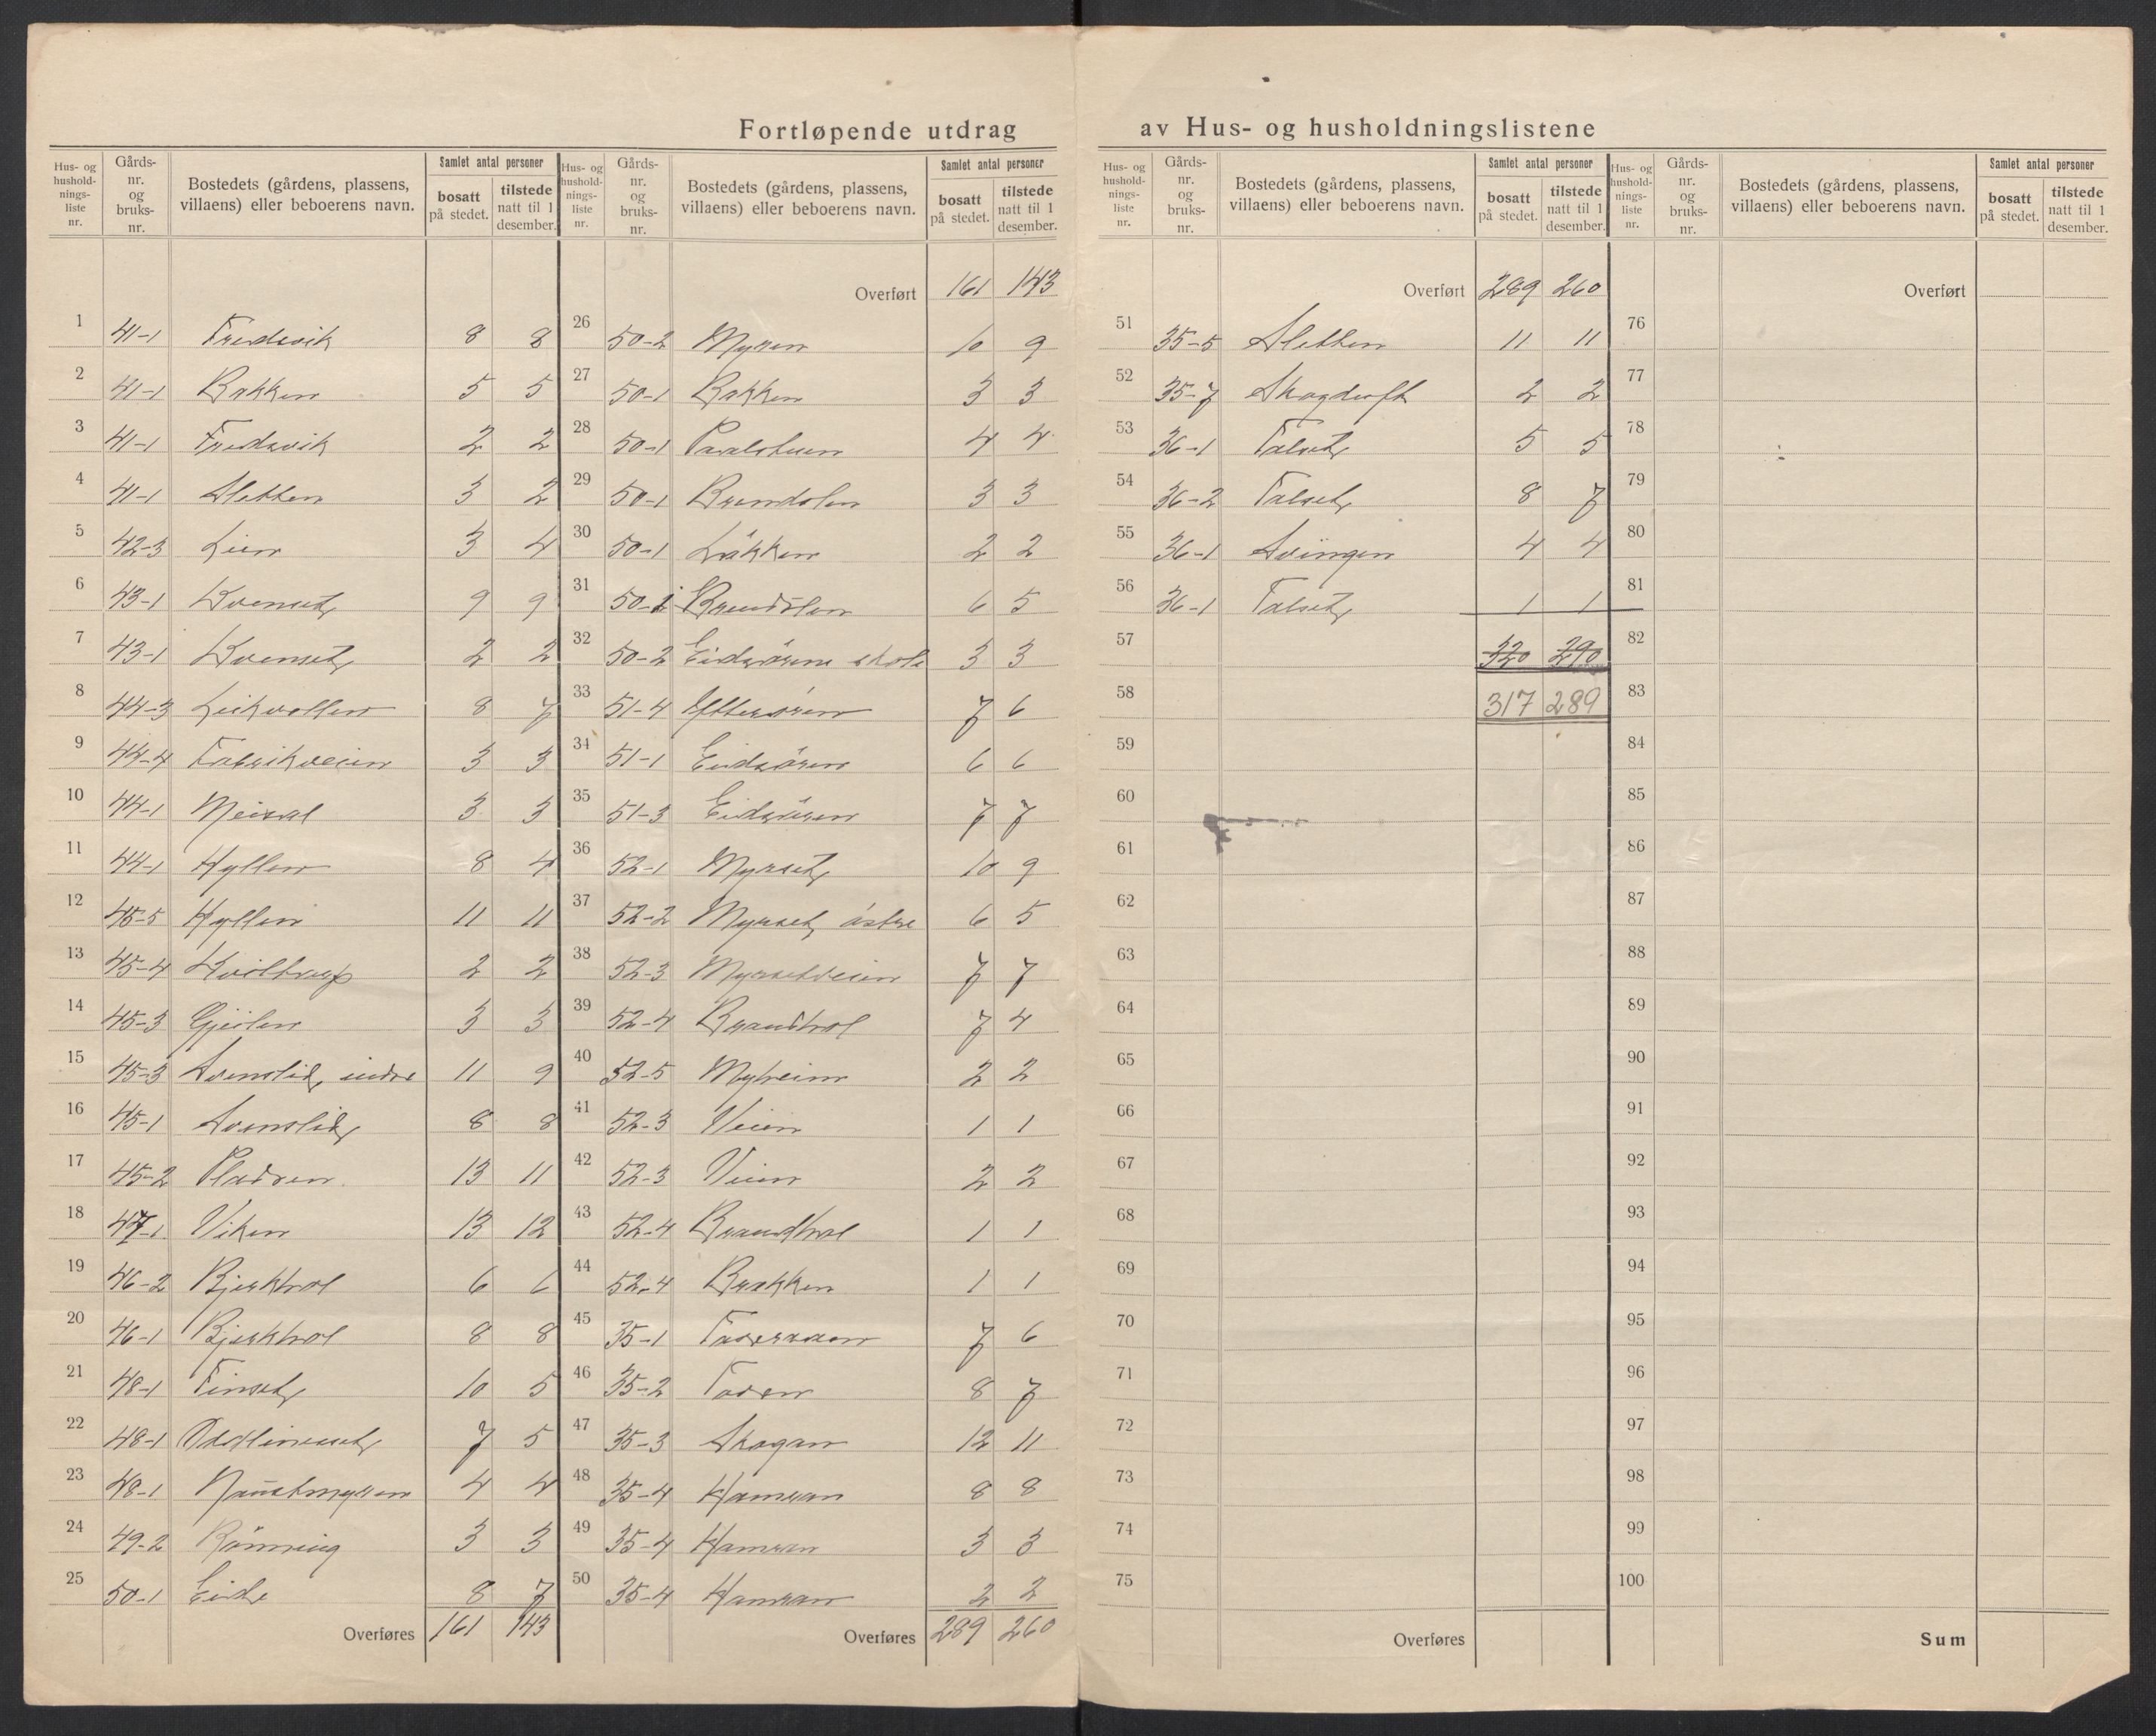 Fortløpende utdrag av Hus- og husholdningslistene
Hus- og hushold-nings-liste nr. | Gårds-nr. og bruks-nr. | Bostedets (gårdens, plassens, villaens) eller beboerens navn. | Samlet antal personer | bosatt på stedet. | tilstede natt til 1 desember.
1 41-1 Fredsvik 8 8
2 41-1 Bakken 5 5
3 41-1 Fredsvik 2 2
4 41-1 Sletten 3 2
5 42-3 Lien 3 4
6 43-1 Kvenset 9 9
7 43-1 Kvenset 2 2
8 44-3 Leikvollen 8 7
9 44-4 Fabrikveien 3 3
10 44-1 Meisal 3 3
11 44-1 Hyllen 8 4
12 45-5 Hyllen 11 11
13 45-4 Kviltrup 2 2
14 45-3 Gjeilen 3 3
15 45-3 Svenslid, indre 11 9
16 45-1 Svenslid 8 8
17 45-2 13 11
18 47-1 Viken 13 12
19 46-2 Bjerktrol 6 6
20 46-1 Bjerktrol 8 8
21 48-1 Finset 10 5
22 48-1 7 5
23 48-1 Naustmyren 4 4
24 49-2 Rönning 3 3
25 50-1 Eide 8 7
Overføres 161 143
Hus- og hushold-nings-liste nr. | Gårds-nr. og bruks-nr. | Bostedets (gårdens, plassens, villaens) eller beboerens navn. | Samlet antal personer | bosatt på stedet. | tilstede natt til 1 desember.
Overført 161 143
26 50-2 Myren 10 9
27 50-1 Bakken 3 3
28 50-1 Paalstuen 4 4
29 50-1 3 3
30 50-1 Løkken 2 2
31 50-1 6 5
32 50-2 Eidsören skole 3 3
33 51-4 7 6
34 51-1 Eidsören 6 6
35 51-3 Eidsören 7 7
36 52-1 Myrset 10 9
37 52-2 Myrset, östre 6 5
38 52-3 Myrsetveien 7 7
39 52-4 Brandhol 7 4
40 52-5 Myheim 2 2
41 52-3 Veien 1 1
42 52-3 Veien 2 2
43 52-4 Brandhol 1 1
44 52-4 Brakken 1 1
45 35-1 7 6
46 35-2 8 7
47 35-3 Skogan 12 11
48 35-4 Hamran 8 8
49 35-4 Hamran 3 3
50 35-4 Hamran 2 2
Overføres 289 260
Hus- og hushold-nings-liste nr. | Gårds-nr. og bruks-nr. | Bostedets (gårdens, plassens, villaens) eller beboerens navn. | Samlet antal personer | bosatt på stedet. | tilstede natt til 1 desember.
Overført 289 260
51 35-5 Sletten 11 11
52 35-7 Skogtuft 2 2
53 36-1 Talset 5 5
54 36-2 Talset 8 7
55 36-1 Svingen 4 4
56 36-1 Talset 1 1
57 320 290
58 317 289
59
60
61
62
63
64
65
66
67
68
69
70
71
72
73
74
75
Overføres
Hus- og hushold-nings-liste nr. | Gårds-nr. og bruks-nr. | Bostedets (gårdens, plassens, villaens) eller beboerens navn. | Samlet antal personer | bosatt på stedet. | tilstede natt til 1 desember.
Overført
76
77
78
79
80
81
82
83
84
85
86
87
88
89
90
91
92
93
94
95
96
97
98
99
100
Sum